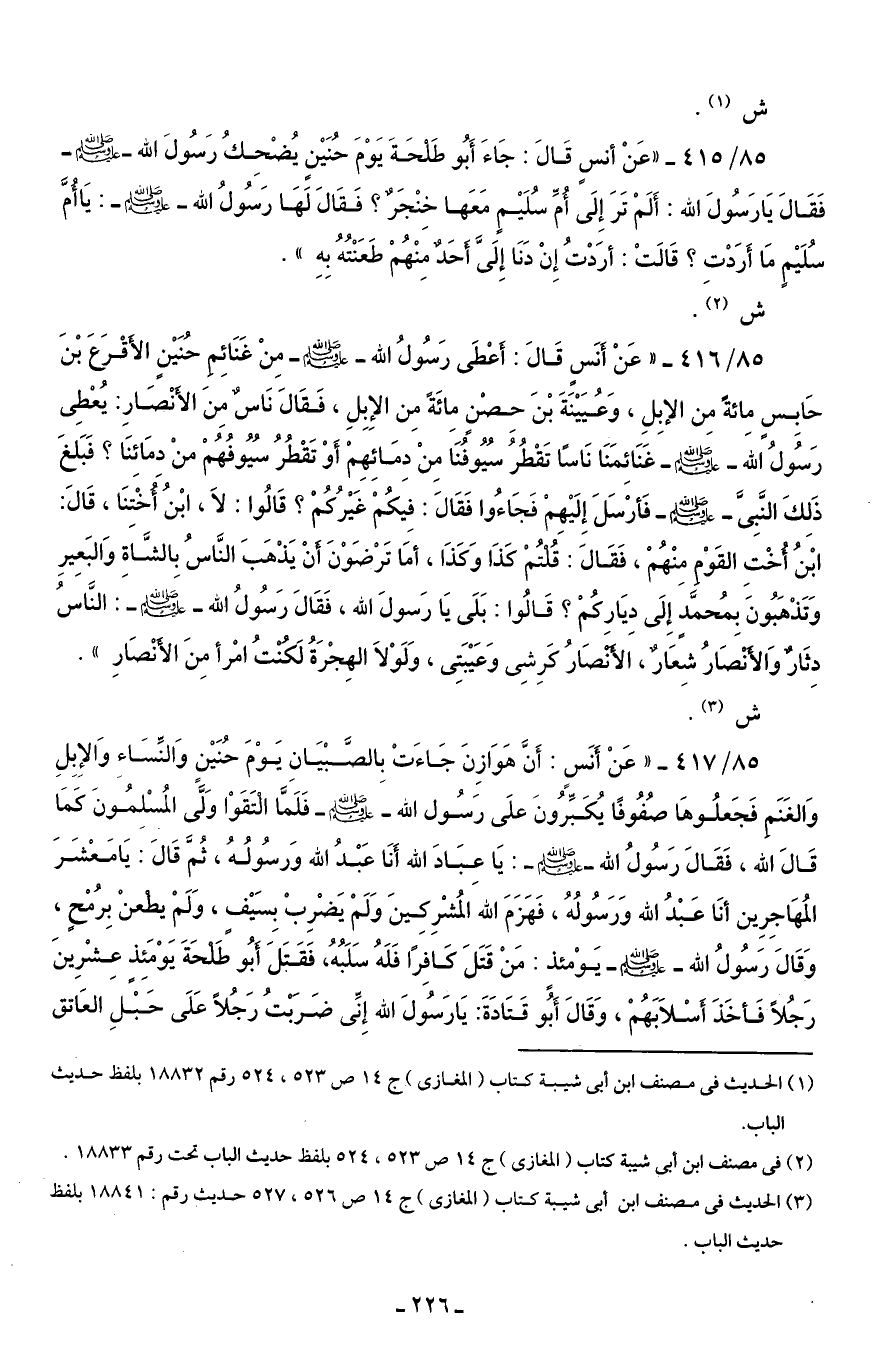 ش (١) .
٤١٥/٨٥ ـ «عَنْ أنسٍ قَالَ : جَاءَ أَبُو طَلْحَةَ يَوْمَ حُنَيْنٍ يُضْحِكُ رَسُولَ الله ـ ﷺ ـ
فَقَالَ يَارَسُولَ الله : أَلَمْ تَرَ إِلَى أُمِّ سُلَيْمٍ مَعَهَا خنْجَرٌ ؟ فَقَالَ لَهَا رَسُولُ الله ـ ﷺ ـ : يَاأُمَّ
سُلَيْمٍ مَا أَرَدْتِ ؟ قَالَتْ : أَرَدْتُ إِنْ دَنَا إِلَىَّ أَحَدٌ مِنْهُمْ طَعَنْتُهُ بِهِ » .
ش (٢) .
٤١٦/٨٥ ـ « عَنْ أَنَسٍ قَالَ : أَعْطَى رَسُولُ الله ـ ﷺ ـ مِنْ غَنَائِمِ حُنَيْنٍ الأَقْرَعَ بْنَ
حَابِسٍ مِائَةً مِنَ الإِبِلِ ، وَعُيَيْنَةَ بْنَ حِصْنٍ مِائَةً مِنَ الإِبِلِ ، فَقَالَ نَاسٌ مِنَ الأَنْصَارِ: يُعْطِى
رَسُولُ الله ـ ﷺ ـ غَنَائِمَنَا نَاسًا تَقْطُرُ سُيُوفُنَا مِنْ دِمَائِهِمْ أَوْ تَقْطُرُ سُيُوفُهُمْ مِنْ دِمَائِنَا ؟ فَبَلَغَ
ذَلِكَ النَّبِىَّ ـ ﷺ ـ فَأَرْسَلَ إِلَيْهِمْ فَجَاءُوا فَقَالَ : فِيكُمْ غَيْرُكُمْ ؟ قَالُوا : لاَ ، ابْنُ أُخْتِنَا ، قَالَ:
ابْنُ أُخْتِ القَوْمِ مِنْهُمْ ، فَقَالَ : قُلْتُمْ كَذَا وَكَذَا ، أَمَا تَرْضَوْنَ أَنْ يَذْهَبَ النَّاسُ بِالشَّاةِ وَالبَعِيرِ
وَتَذْهَبُونَ بِمُحمَّدٍ إِلَى دِيَارِكُمْ ؟ قَالُوا : بَلَى يَا رَسولَ الله ، فَقَالَ رَسُولُ الله ـ ﷺ ـ : النَّاسُ
دِثَارٌ وَالأَنْصَارُ شِعَارٌ ، الأَنْصَارُ كَرِشِى وَعَيْبَتِى ، وَلَوْلاَ الهِجْرَةُ لَكُنْتُ امْرأ مِنَ الأَنْصَارِ » .
ش (٣) .
٤١٧/٨٥ ـ « عَنْ أَنَسٍ : أَنَّ هَوَازِنَ جَاءَتْ بِالصَّبْيَانِ يَوْمَ حُنَيْنٍ وَالنِّسَاءِ وَالإِبِلِ
وَالغَنَمِ فَجَعَلُوهَا صفُوفًا يُكَبِّرُونَ عَلَى رَسُولِ الله ـ ﷺ ـ فَلَمَّا الْتَقَوْا وَلَّى الْمُسْلِمُونَ كَمَا
قَالَ الله ، فَقَالَ رَسُولُ الله ـ ﷺ ـ : يَا عِبَادَ الله أَنَا عَبْدُ الله وَرَسُولُهُ ، ثُمَّ قَالَ : يَامَعْشَرَ
الْمُهَاجِرِينِ أَنَا عَبْدُ الله وَرَسُولُهُ ، فَهَزَمَ الله الْمُشْرِكِينَ وَلَمْ يَضْرِبْ بِسَيْفٍ ، وَلَمْ يطعنْ بِرُمْحٍ ،
وَقَالَ رَسُولُ الله ـ ﷺ ـ يَوْمئِذٍ : مَنْ قَتَلَ كَافِرًا فَلَهُ سَلَبُهُ، فَقَتَلَ أَبُو طَلْحَةَ يَوْمَئِذٍ عِشْرِينَ
رَجُلاً فَأَخَذَ أَسْلاَبَهُمْ ، وَقَالَ أَبُو قَتَادَةَ: يَارَسُولَ الله إِنِّى ضَرَبْتُ رَجُلاً عَلَى حَبْلِ العَاتِقِ
(١) الحديث فى مصنف ابن أبى شيبة كتاب ( المغازى ) ج ١٤ ص ٥٢٣ ، ٥٢٤ رقم ١٨٨٣٢ بلفظ حديث
الباب.
(٢) فى مصنف ابن أبى شيبة كتاب ( المغازى ) ج ١٤ ص ٥٢٣ ، ٥٢٤ بلفظ حديث الباب تحت رقم ١٨٨٣٣ .
(٣) الحديث فى مصنف ابن أبى شيبة كتاب ( المغازى ) ج ١٤ ص ٥٢٦ ، ٥٢٧ حديث رقم : ١٨٨٤١ بلفظ
حديث الباب .
ـ ٢٢٦ ـ